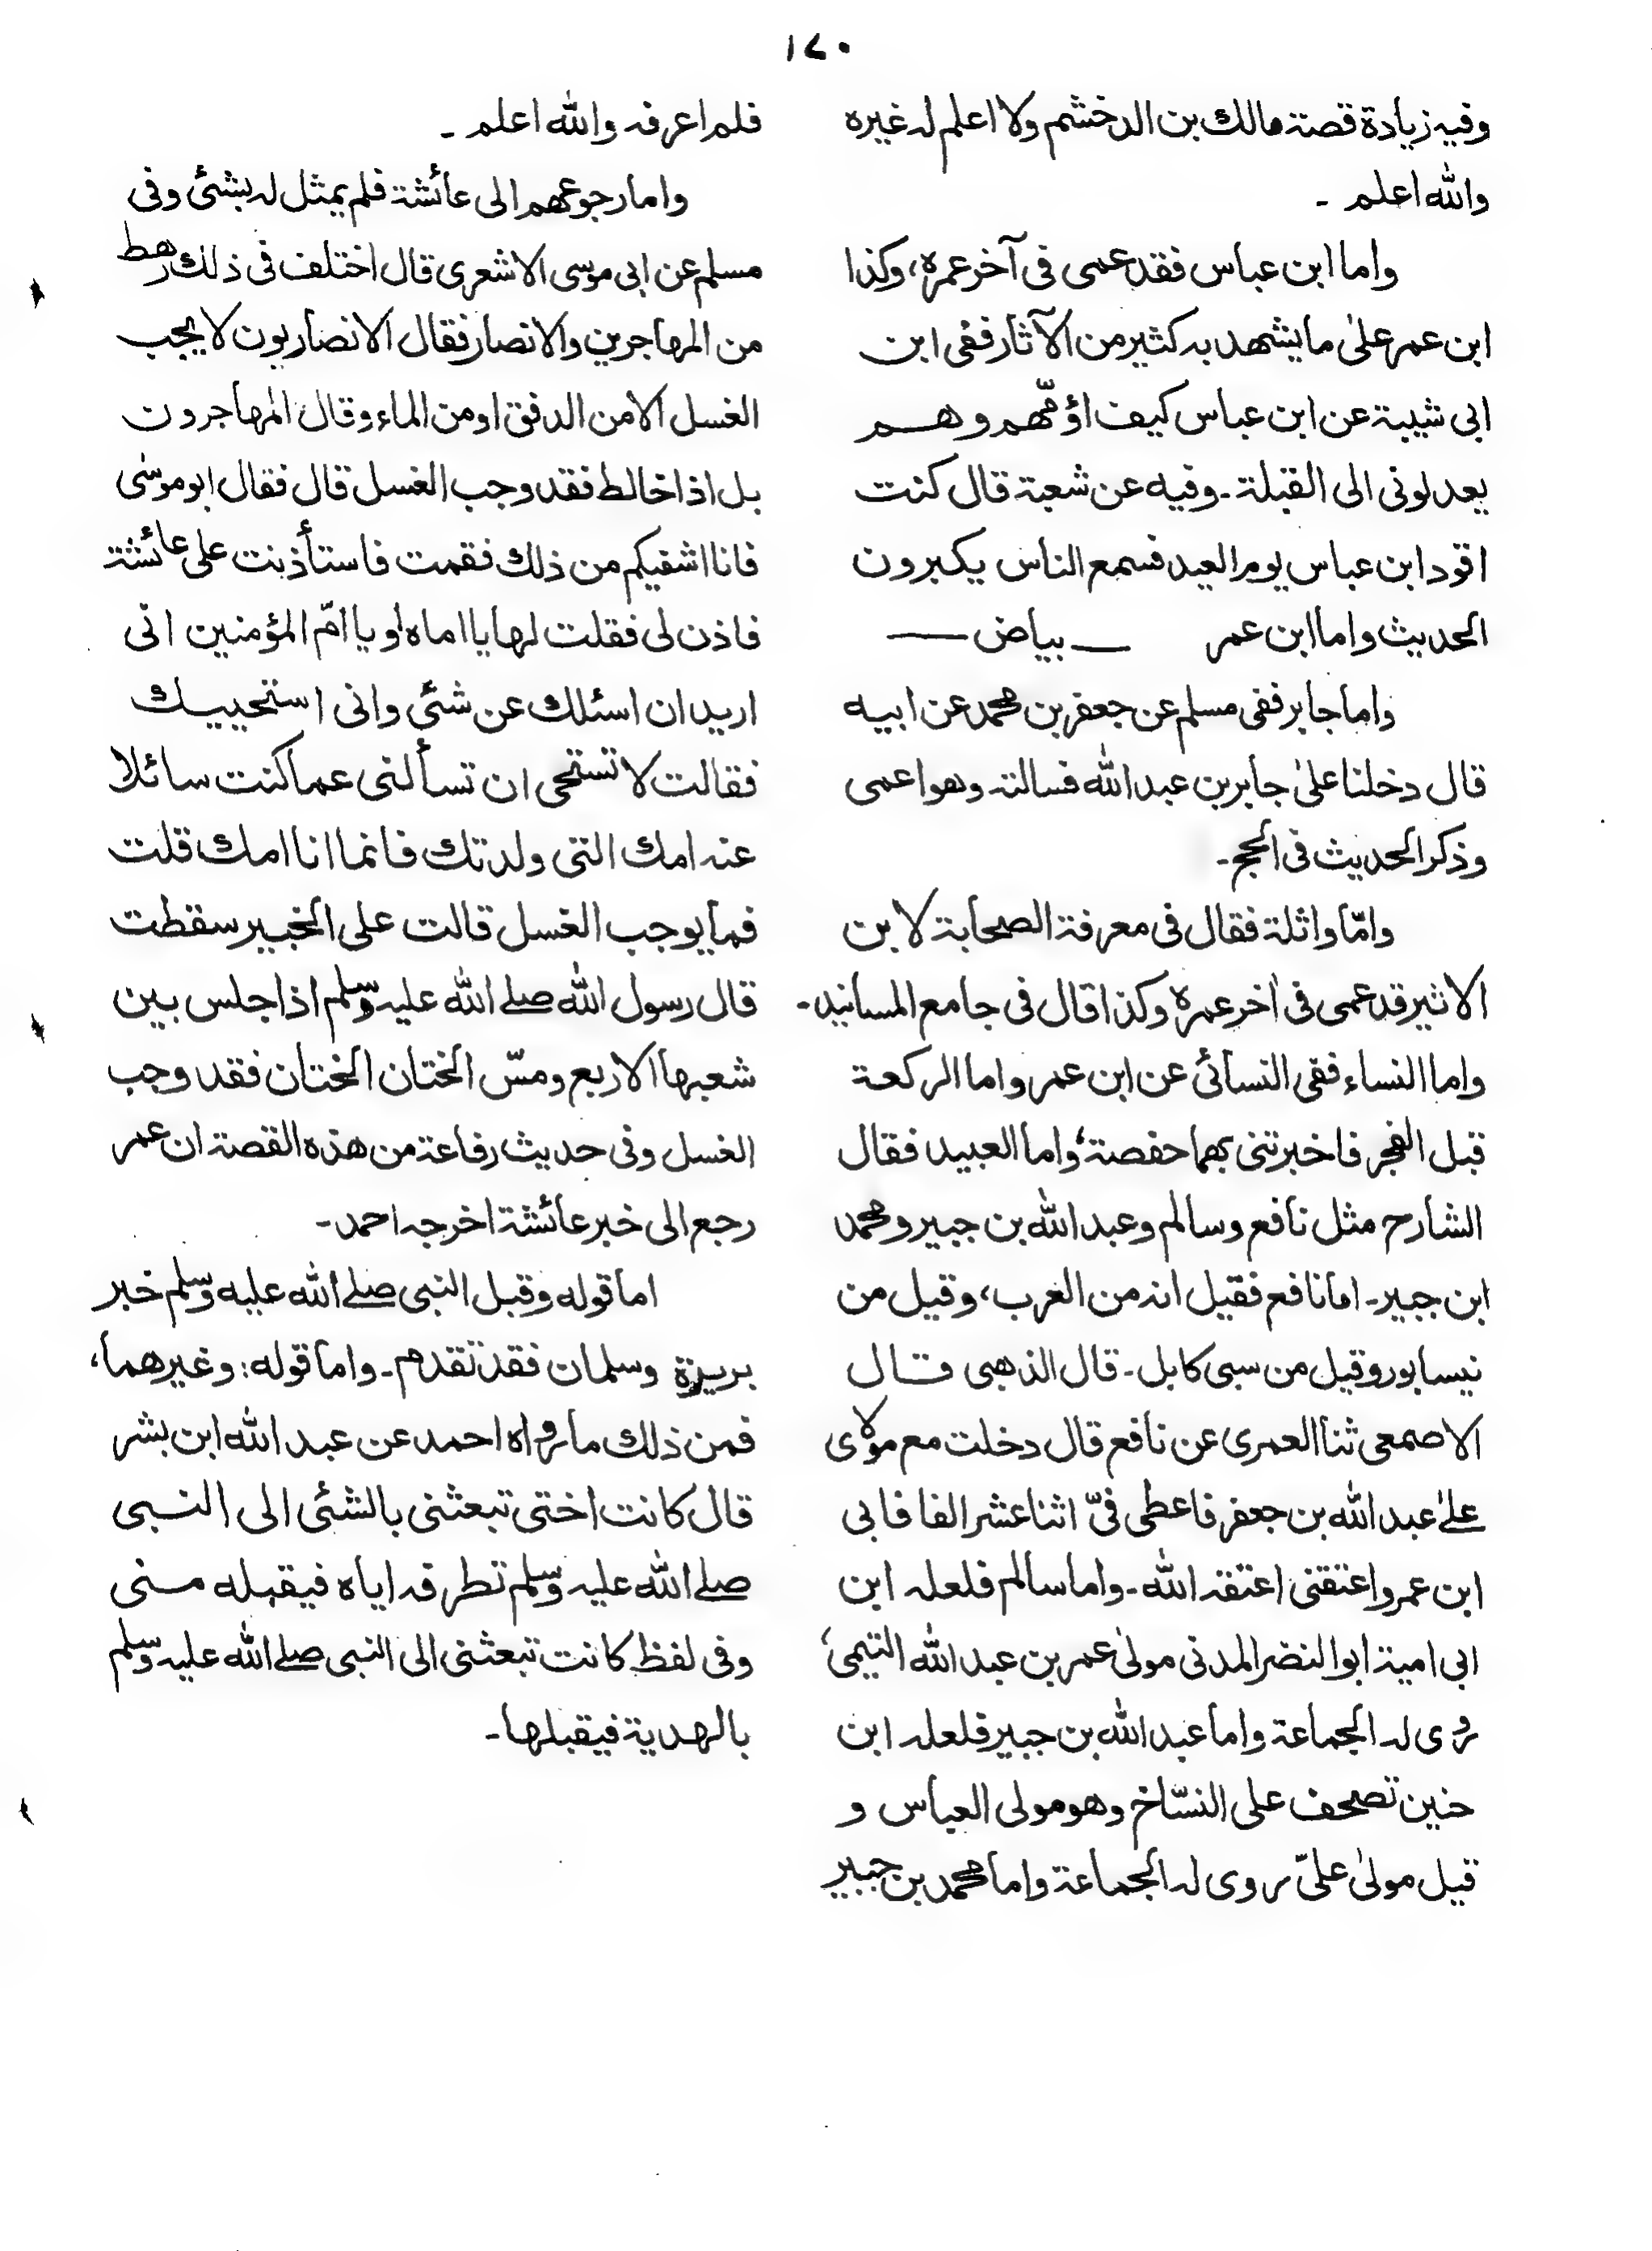 ١٧٠
وفيه زيادة قصة مالك بن الدخشم ولا اعلم له غيره
والله اعلم ۔
واما ابن عباس فقد عمى فى آخر عمره، وكذا
ابن عمر علىٰ ما يشهد به كثير من الآثار ففى ابن
ابى شيبة عن ابن عباس كيف اؤمّهم وهم
يعدلونى الى القبلة۔ وفيه عن شعبة قال كنت
اقود ابن عباس يوم العيد فسمع الناس يكبرون
الحديث واما ابن عمر ــــ بياض ــــ
واما جابر ففى مسلم عن جعفر بن محمد عن ابيه
قال دخلنا علىٰ جابر بن عبد الله فسالته وهو اعمى
وذكر الحديث فى الحج۔
وامّا واثلة فقال فى معرفة الصحابة لابن
الاثير قد عمى فى اٰخر عمره وكذا قال فى جامع المسانيد۔
واما النساء ففى النسائى عن ابن عمر واما الركعة
قبل الفجر فاخبرتنى بهما حفصة، واما العبيد فقال
الشارح مثل نافع وسالم وعبد الله بن جبير ومحمد
ابن جبير۔ اما نافع فقيل انه من العرب، وقيل من
نيسابور وقيل من سبى كابل۔ قال الذهبى قال
الاصمعى ثنا العمرى عن نافع قال دخلت مع مولاى
علىٰ عبد الله بن جعفر فاعطى فىّ اثنا عشر الفا فابى
ابن عمر واعتقنى اعتقه الله۔ واما سالم فلعله ابن
ابى امية ابو النضر المدنى مولىٰ عمر بن عبد الله التيمى،
روى له الجماعة واما عبد الله بن جبير فلعله ابن
حنين تصحف على النسّاخ وهو مولى العباس و
قيل مولىٰ علىّ روى له الجماعة واما محمد بن جبير
فلم اعرفه والله اعلم ۔
واما رجوعهم الى عائشة فلم يمثل له بشئ وفى
مسلم عن ابى موسى الاشعرى قال اختلف فى ذلك رهط
من المهاجرين والانصار فقال الانصاريون لا يجب
الغسل الا من الدفق او من الماء وقال المهاجرون
بل اذا خالط فقد وجب الغسل قال فقال ابو موسٰى
فانا اشفيكم من ذلك فقمت فاستأذنت على عائشة
فاذن لى فقلت لها يا اماه او يا امّ المؤمنين انى
اريد ان اسئلك عن شئ وانى استحييك
فقالت لا تستحى ان تسألنى عما كنت سائلا
عنه امك التى ولدتك فانما انا امك قلت
فما يوجب الغسل قالت على الخبير سقطت
قال رسول الله صلے الله عليه وسلم اذا جلس بين
شعبها الاربع ومسّ الختان الختان فقد وجب
الغسل وفى حديث رفاعة من هذه القصة ان عمر
رجع الى خبر عائشة اخرجه احمد۔
اما قوله وقبل النبى صلے الله عليه وسلم خبر
بريرة وسلمان فقد تقدم۔ واما قوله: وغيرهما،
فمن ذلك ما رواه احمد عن عبد الله ابن بشر
قال كانت اختى تبعثنى بالشئى الى النبى
صلے الله عليه وسلم تطرفه اياه فيقبله منى
وفى لفظ كانت تبعثنى الى النبى صلے الله عليه وسلم
بالهدية فيقبلها۔